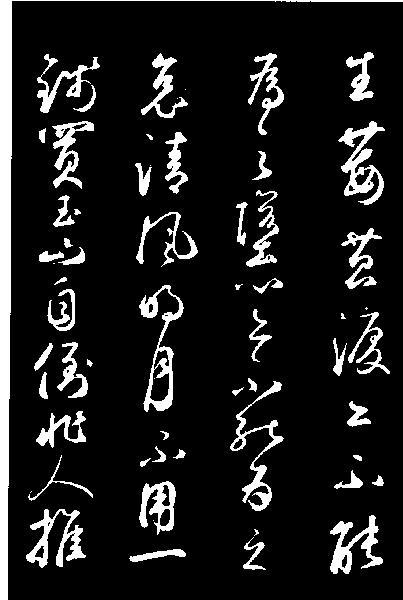 生莓苔淚亦不能
為之墮心亦不能為之
哀清風明月不用一
錢買玉山自倒非人推